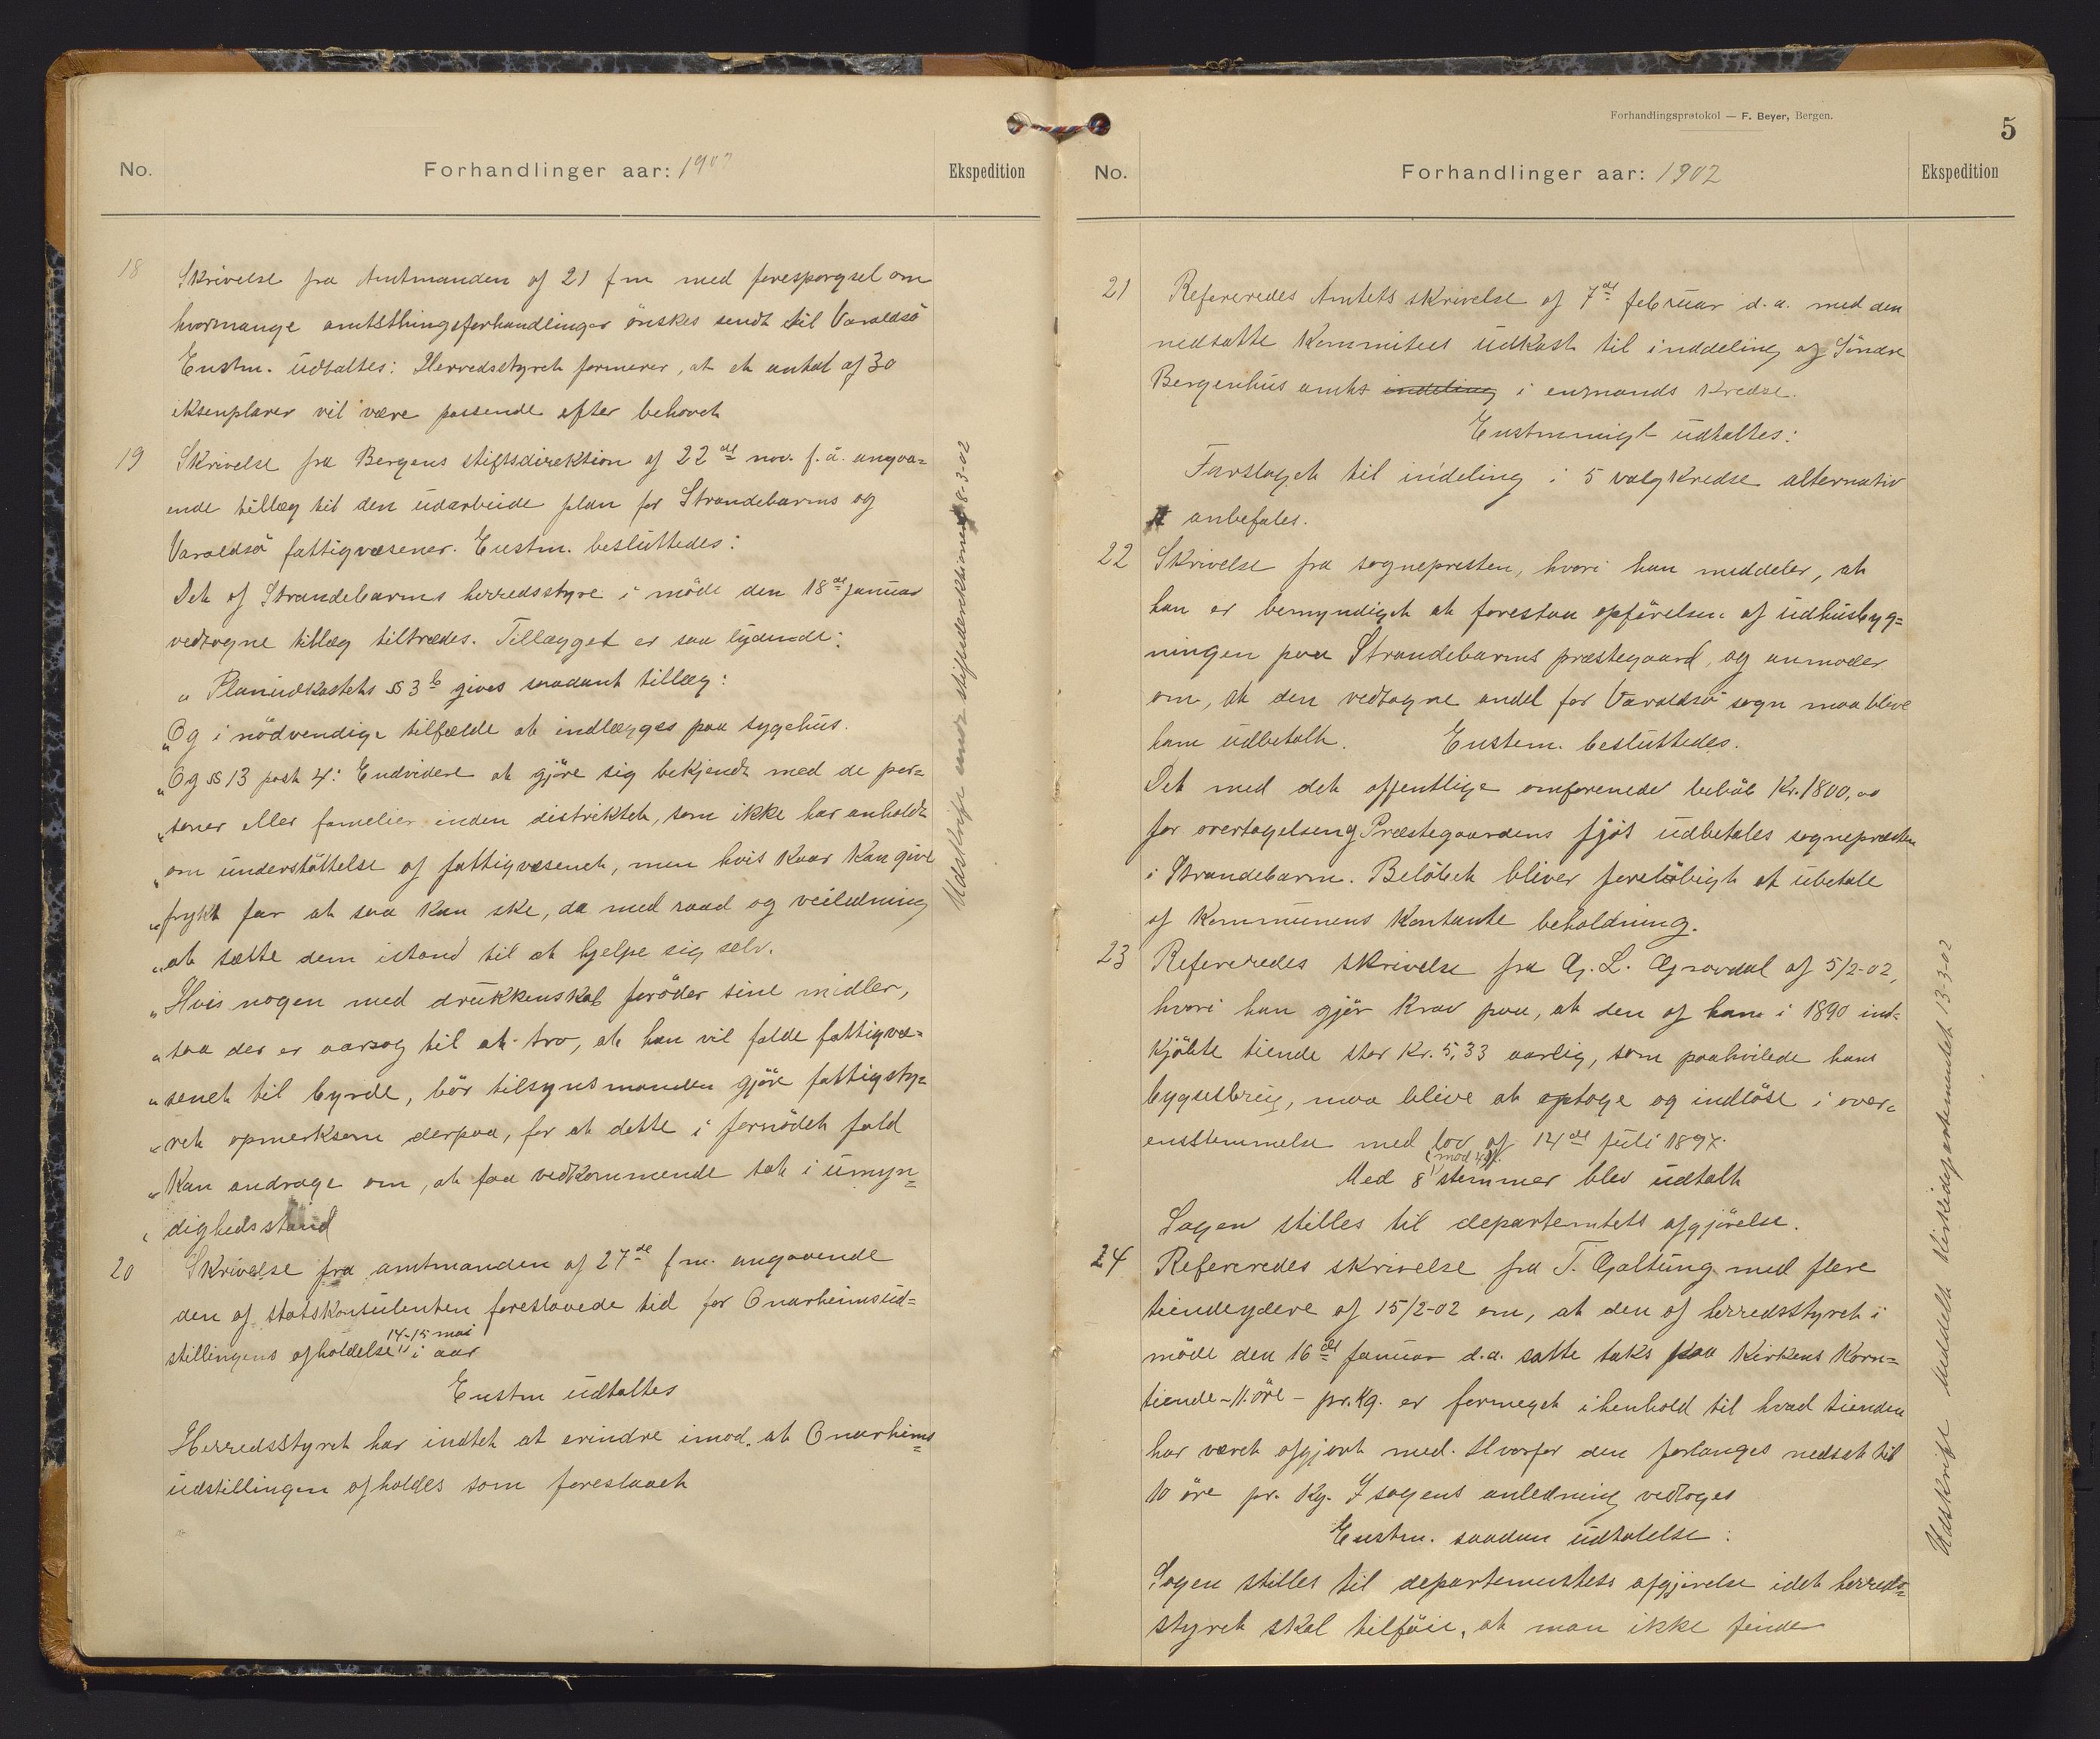 No.
Forhandlinger aar: 1902
Ekspedition
18
Skrivelse fra Amtmanden af 21 f m med forespørgsel om
hvormange amtsthingsforhandlinger önskes sendt til Varaldsö
Enstm. udtaltes: Herredsstyret formener, at et antal af 30
eksemplarer vil være passende efter behovet
19
Skrivelse fra Bergens stiftsdirektion af 22de nov. f.å. angaa=
ende tillæg til den udarbeide plan for Strandebarms og
Varaldsö fattigvæsener. Enstm. besluttedes:
Det af Strandebarms herredsstyre i möde den 18de januar
vedtagne tillæg tiltrædes. Tillægget er saa lydende:
„ Planudkastets § 3 b gives saadant tillæg:
„Og i nödvendige tilfælde at indlægges paa sygehus.
„Og § 13 post 4: Endvidere at gjöre sig bekjendt med de per=
„soner eller familier inden distriktet, som ikke har anholdt
„om understöttelse af fattigvæsenet, men hvis kaar kan give
„frykt for at saa kan ske, da med raad og veiledning
„at sætte dem istand til at hjelpe sig selv.
„Hvis nogen med drukkenskab foröder sine midler,
„saa der er aarsag til at tro, at han vil falde fattigvæ=
„senet til byrde, bör tilsynsmanden gjöre fattigsty=
„ret opmerksom derpaa, for at dette i fornödet fald
„Kan andrage om, at faa vedkommende sat i umyn=
„dighedsstand
Udskrift
stiftsdirektionen 8-3-02
20
Skrivelse fra amtmanden af 27de f m. angaaende
den af statskonsulenten foreslaaede tid for Onarheimsud=
stillingens afholdelse 14-15 mai i aar
Enstm udtaltes
Herredsstyret har indtet at erindre imod, at Onarheims=
udstillingen afholdes som foreslaaet
Forhandlingsprotokol — F. Beyer, Bergen.
5
No.
Forhandlinger aar: 1902
Ekspedition
21
Refereredes Amtets skrivelse af 7de februar d.a. med den
nedsatte Kommitees udkast til inddeling af Söndre
Bergenhus amts indeling i enmands kredse.
Enstemmigt udtaltes:
Forslaget til indeling i 5 valgkredse alternativ
anbefales.
22
Skrivelse fra sognepresten, hvori han meddeler, at
han er bemyndiget at forestaa opförelsen af udhusbyg=
ningen paa Strandebarms præstegaard, og anmoder
om, at den vedtagne andel for Varaldsö sogn maa blive
ham udbetalt. Enstem. besluttedes.
Det med det offentlige omforenede belöb Kr. 1800,00
for overtagelsen af Præstegaardens fjös udbetales sognepræsten
i Strandebarm. Belöbet bliver forelöbigt at ubetale
af Kommunens Kontante beholdning.
23
Refereredes skrivelse fra G. L. Gravdal af 5/2-02,
hvori han gjör krav paa, at den af ham i 1890 ind=
kjöbte tiende stor Kr. 5,33 aarlig, som paahvilede hans
bygselbrug, maa blive at optage og indlöse i over=
ensstemmelse med lov af 14de juli 1897.
Med 8 (mod 4) stemmer blev udtalt
Sagen stilles til departemtets afgjörelse.
24
Refereredes skrivelse fra T. Galtung med flere
tiendeydere af 15/2-02 om, at den af herredsstyret i
möde den 16de januar d.a. satte taks paa Kirkens Korn=
tiende - 11 öre - pr. Kg. er formeget ihenhold til hvad tienden
har været afgjort med. Hvorfor den forlanges nedsat til
10 öre pr. Kg. I sagens anledning vedtoges
Enstm. saadan udtalelse:
Sagen stilles til departementets afgjörelse idet herreds=
styret skal tilföie, at man ikke finder
Udskrift meddelt Kirkedepartementet 13-3-02